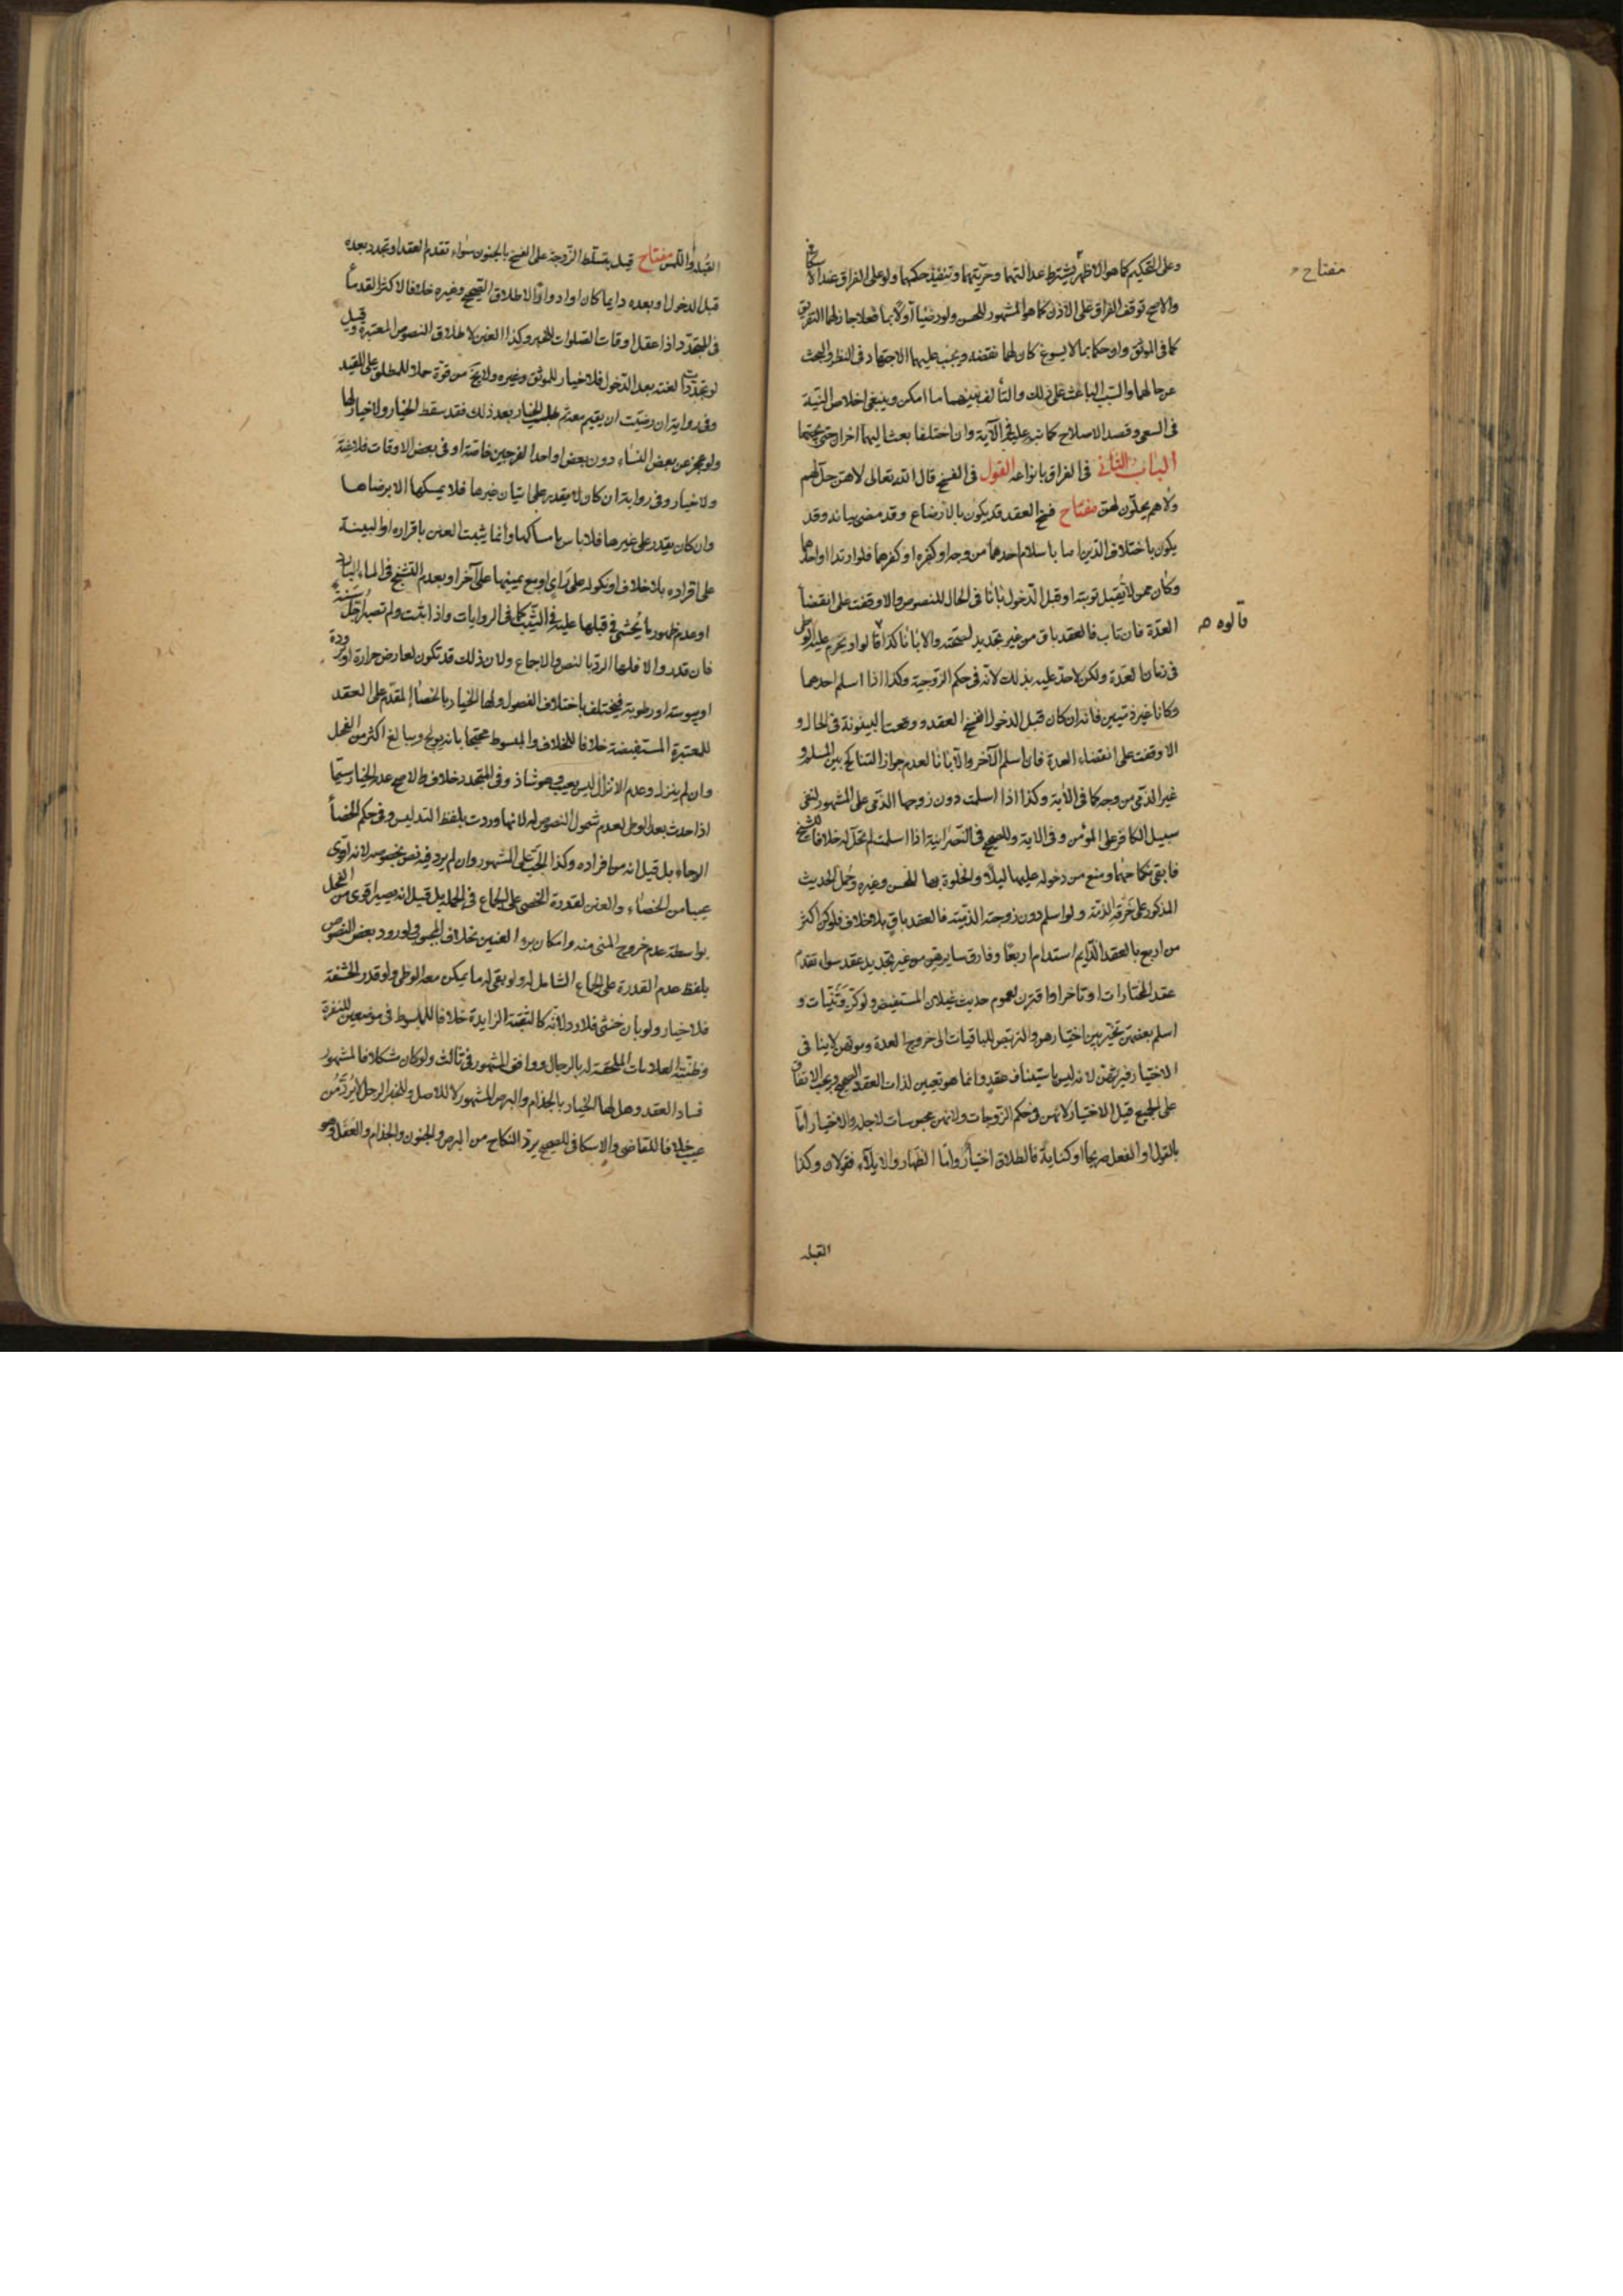 وعلى التحكيم كما هو الاظهر يشترط عدالتهما وحريتهما وتنفيذ حكمهما ولو على الفراق عند الاسكافي
مفتاح
والاصح توقف الفراق على الاذن كما هو المشهور للحسن ولو رضيا اولا بما فعلا جاز لهما التفريق
كما في الموثق ولو حكما بما لا يسوغ كان لهما نقضه ويجب عليهما الاجتهاد في النظر والبحث
عن حالهما والسبب الباعث على ذلك والتألف بينهما ما امكن وينبغي اخلاص النية
في السعي وقصد الاصلاح كما نبه عليه في الآية وان اختلفا بعث اليهما اخران حتى يجتمعا
الباب الثاني في الفراق بانواعه القول في الفسخ قال الله تعالى لا هن حل لهم
ولا هم يحلون لهن مفتاح فسخ العقد قد يكون بالارضاع وقد مضى بيانه وقد
يكون باختلاف الدين اما باسلام احدهما من وجه او كفره او كفرهما فلو ارتدا او احدهما
وكان ممن لا تقبل توبته او قبل الدخول بانا في الحال للنصوص والا وقفت على انقضاء
العدة فان تاب فالعقد باق من غير تجديد لصحته والا بانا كذا قالوا ويحرم عليه الوطي
قالوه
في زمان العدة ولكن لا حد عليه بذلك لانه في حكم الزوجية وكذا اذا اسلم احدهما
وكانا غير ذميين فانه ان كان قبل الدخول انفسخ العقد ووقعت البينونة في الحال و
الا وقفت على انقضاء العدة فان اسلم الآخر والا بانا لعدم جواز التناكح بين المسلم و
غير الذمي من وجه كما في الآية وكذا اذا اسلمت دون زوجها الذمي على المشهور لنفي
سبيل الكافر على المؤمن وفي الآية وللصحيح في النصرانية اذا اسلمت لم تحل له خلافا للشيخ
فابقى نكاحهما ومنع من دخوله عليها ليلا والخلوة بها للحسن وغيره وحمل الحديث
المذكور على خرقه الذمة ولو اسلم دون زوجته الذمية فالعقد باق بلا خلاف فلو كن اكثر
من اربع بالعقد الدايم استدام اربعا وفارق سايرهن من غير تجديد عقد سواء تقدم
عقد المختارات او تاخر او اقترن لعموم حديث غيلان المستفيض ولو كن وثنيات و
اسلم بعضهن تخير بين اختيارهن والتربص للباقيات الى خروج العدة وموتهن لا ينافي
الاختيار فيرثهن لانه ليس باستيناف عقد وانما هو تعيين لذات العقد الصحيح ويجب الانفاق
على الجميع قبل الاختيار لانهن في حكم الزوجات ولانهن محبوسات لاجله والاختيار اما
بالقول او الفعل صريحا او كناية فالطلاق اختيار واما الظهار والايلاء فقولان وكذا
القبله
القبلة واللمس مفتاح قيل بتسلط الزوجة على الفسخ بالجنون سواء تقدم العقد او تجدد بعده
قبل الدخول او بعده دايما كان او ادوارا لاطلاق الصحيح وغيره خلافا لاكثر القدماء
في المتجدد اذا عقل اوقات الصلوات للخبر وكذا العنن لاطلاق النصوص المعتبرة وقيل
لو تجددت العنة بعد الدخول فلا خيار للموثق وغيره ولا يخ من قوة حملا للمطلق على المقيد
وفي رواية ان رضيت ان يقيم معه ثم طلب الخيار بعد ذلك فقد سقط الخيار ولا خيار لها
ولو عجز عن بعض النساء دون بعض او احد الفرجين خاصة او في بعض الاوقات فلا عنة
ولا خيار وفي رواية ان كان لا يقدر على اتيان غيرها فلا يمسكها الا برضاها
وان كان يقدر على غيرها فلا باس بامساكها وانما يثبت العنن باقراره او البينة
على اقراره بلا خلاف او نكوله على راي او مع يمينها على آخر او بعدم التشنج في الماء البارد
او عدم ظهور ما يحشى في قبلها عليه في الثيب كما في الروايات واذا ثبت ولم تصبر اجل سنة
فان قدر والا فلها الرد بالنص والاجماع ولان ذلك قد تكون لعارض حرارة او برودة
او يبوسة او رطوبة فيختلف باختلاف الفصول ولها الخيار بالخصاء المقدم على العقد
للمعتبرة المستفيضة خلافا للخلاف والمبسوط محتجا بانه يولج ويبالغ اكثر من الفحل
وان لم ينزل وعدم الانزال ليس بعيب وهو شاذ وفي المتجدد خلاف والاصح عدم الخيار سيما
اذا حدث بعد الوطي لعدم شمول النصوص له لانها وردت بلفظ التدليس وفي حكم الخصاء
الوجاء بل قيل انه من افراده وكذا الجب على المشهور وان لم يرد فيه نص بخصوصه لانه اقوى
عيبا من الخصاء والعنن لقدرة الخصي على الجماع في الجملة بل قيل انه يصير اقوى من الفحل
بواسطة عدم خروج المني منه وامكان برء العنين بخلاف المجبوب ولورود بعض النصوص
بلفظ عدم القدرة على الجماع الشامل له ولو بقي له ما يمكن معه الوطي ولو قدر الحشفة
فلا خيار ولو بان خنثى فلا رد لانه كالثقبة الزايدة خلافا للمبسوط في موضعين للنفرة
وظنية العلامات الملحقة له بالرجال ووافق المشهور في ثالث ولو كان مشكلا فالمشهور
فساد العقد وهل لها الخيار بالجذام والبرص المشهور لا للاصل وللخبر الرجل لا يرد من
عيب خلافا للقاضي والاسكافي للصحيح يرد النكاح من البرص والجنون والجذام والعفل وهو